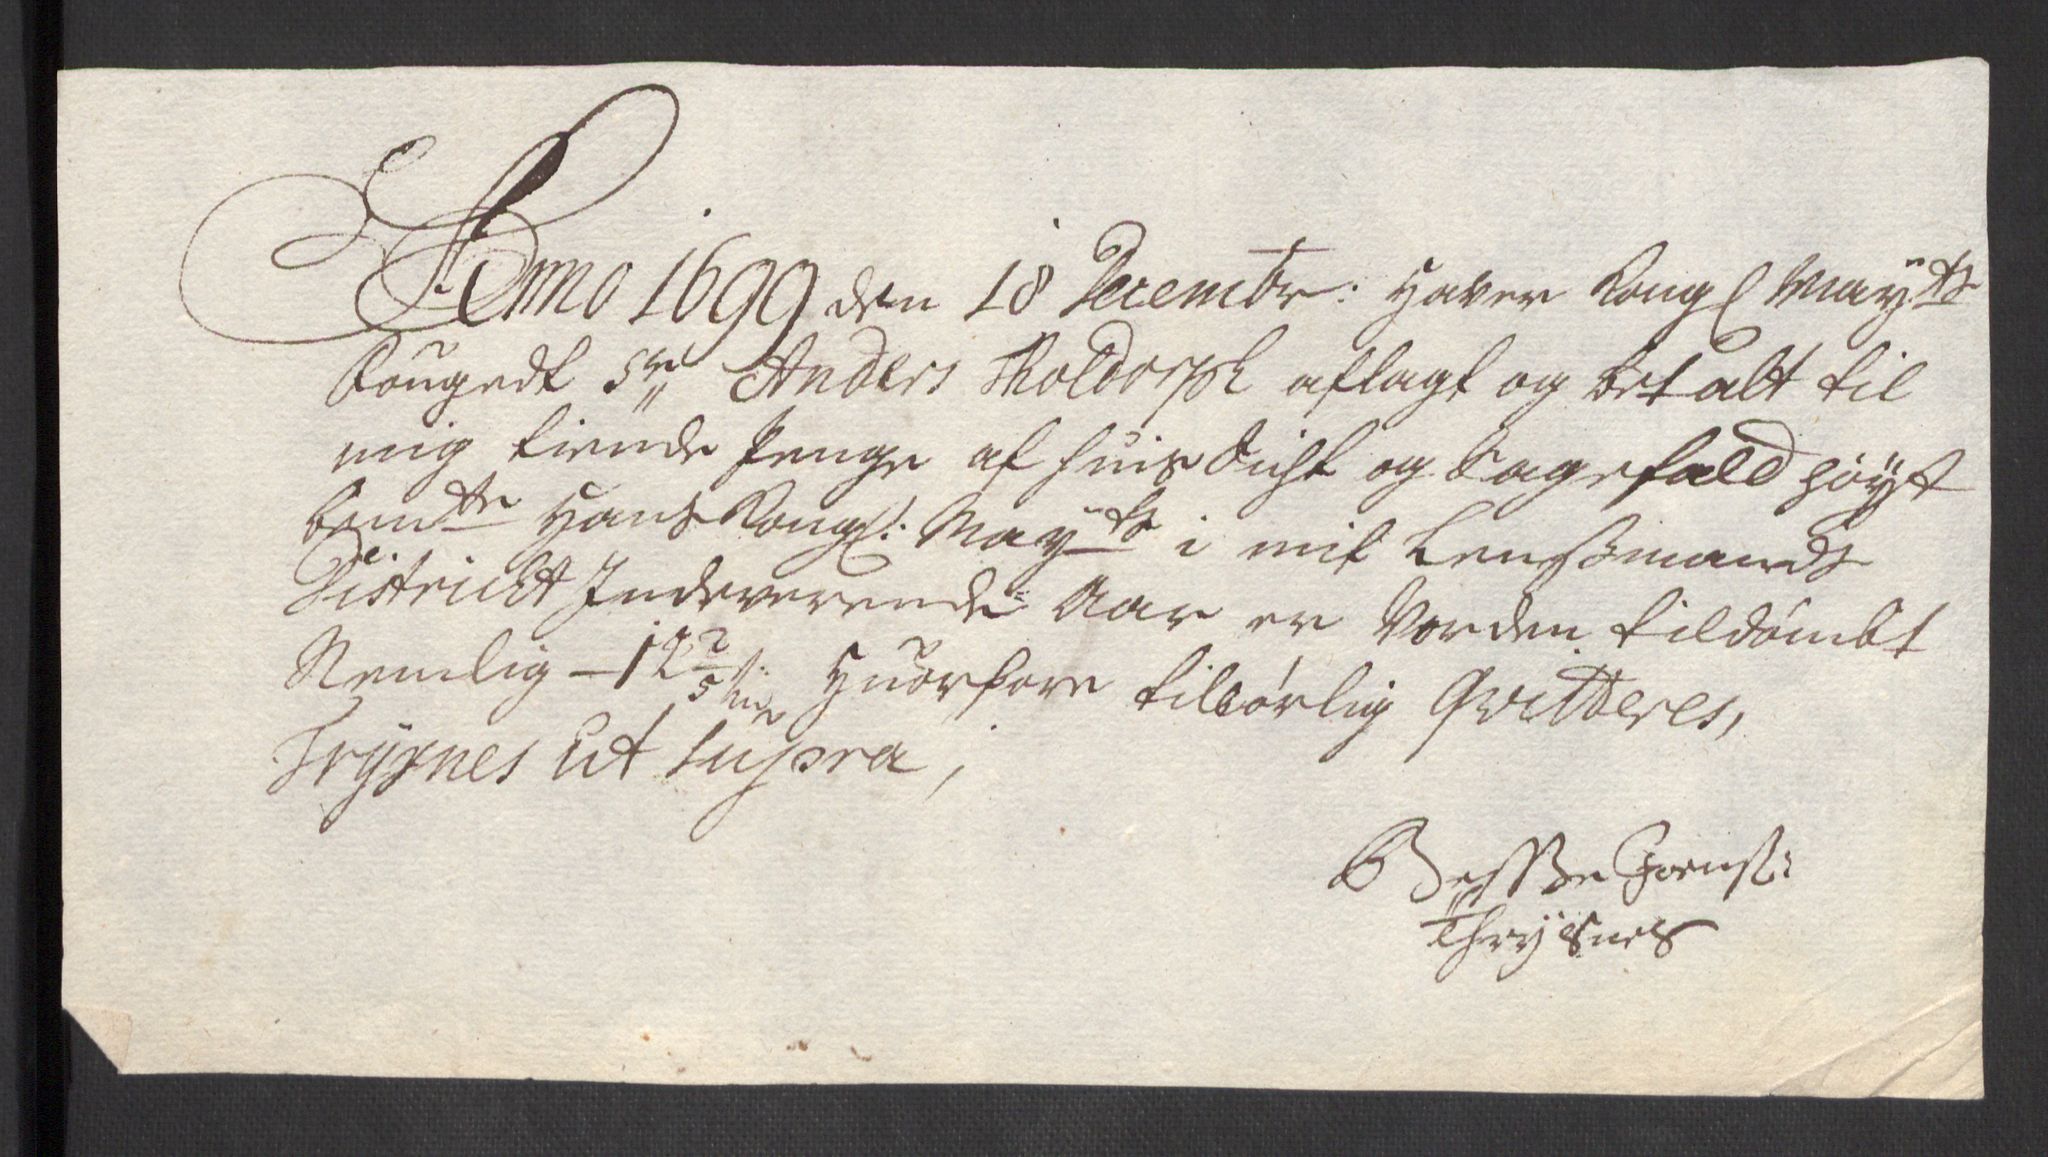 Anno 1699 den 18 Decembr: Haver Kongl Mayts
Fougedt Sr Anders Moldorph aflagt og betalt til
mig tiende Penge af huis Sicht og Sagefald høyst
bemte Hans Kongl: Mayts i mit Lenssmands
District Indeverende Aar er Vorden tildømbt
Nemlig – 12
Huorfore tilbørlig Qvitteres,
Trysnes ut supra,
Thrysnes